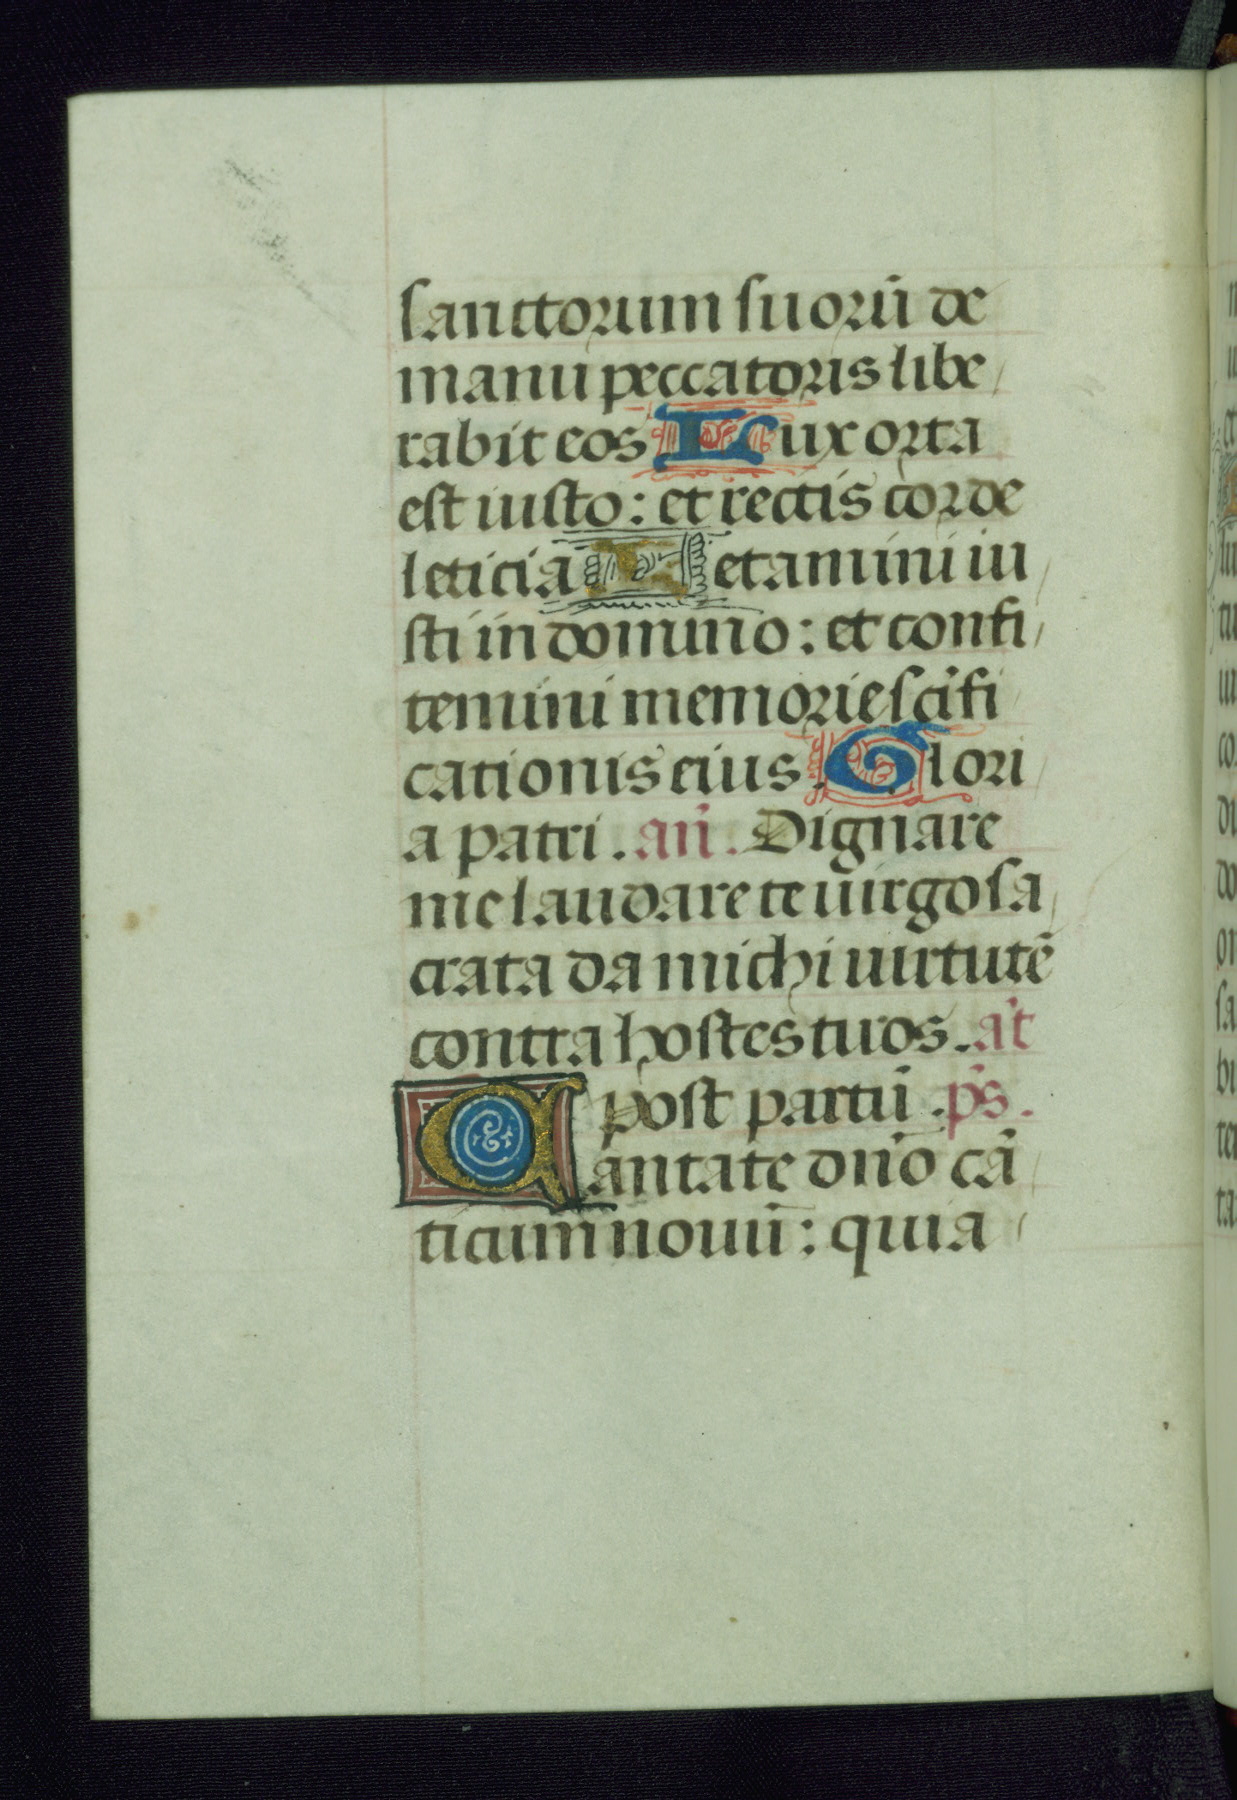 sanctorum suorū de
manu peccatoris libe
rabit eos Lux orta
est iusto : et rectis corde
leticia Letamini iu
sti in domino : et confi
temini memorie scīfi
cationis eius . Glori
a patri . añ . Dignare
me laudare te uirgo sa
crata da michi uirtutē
contra hostes tuos . at̄
post partū . p̄s .
Cantate dn̄o cā
ticum nouū : quia